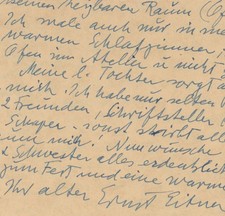 meinen heizbaren Raum (Of
Ich male auch nur in me
warmen Schlafzimmer,
Ofen im Atelier u nicht
Meine l. Tochter sorgt a
mich. Ich habe nur selten
2 Freunden, Schriftsteller
Schaper. sonst stirbt all
um mich. Nun wünsche
& Schwester alles erdenklich
zum Fest und eine warme
Ihr alter Ernst Eitner